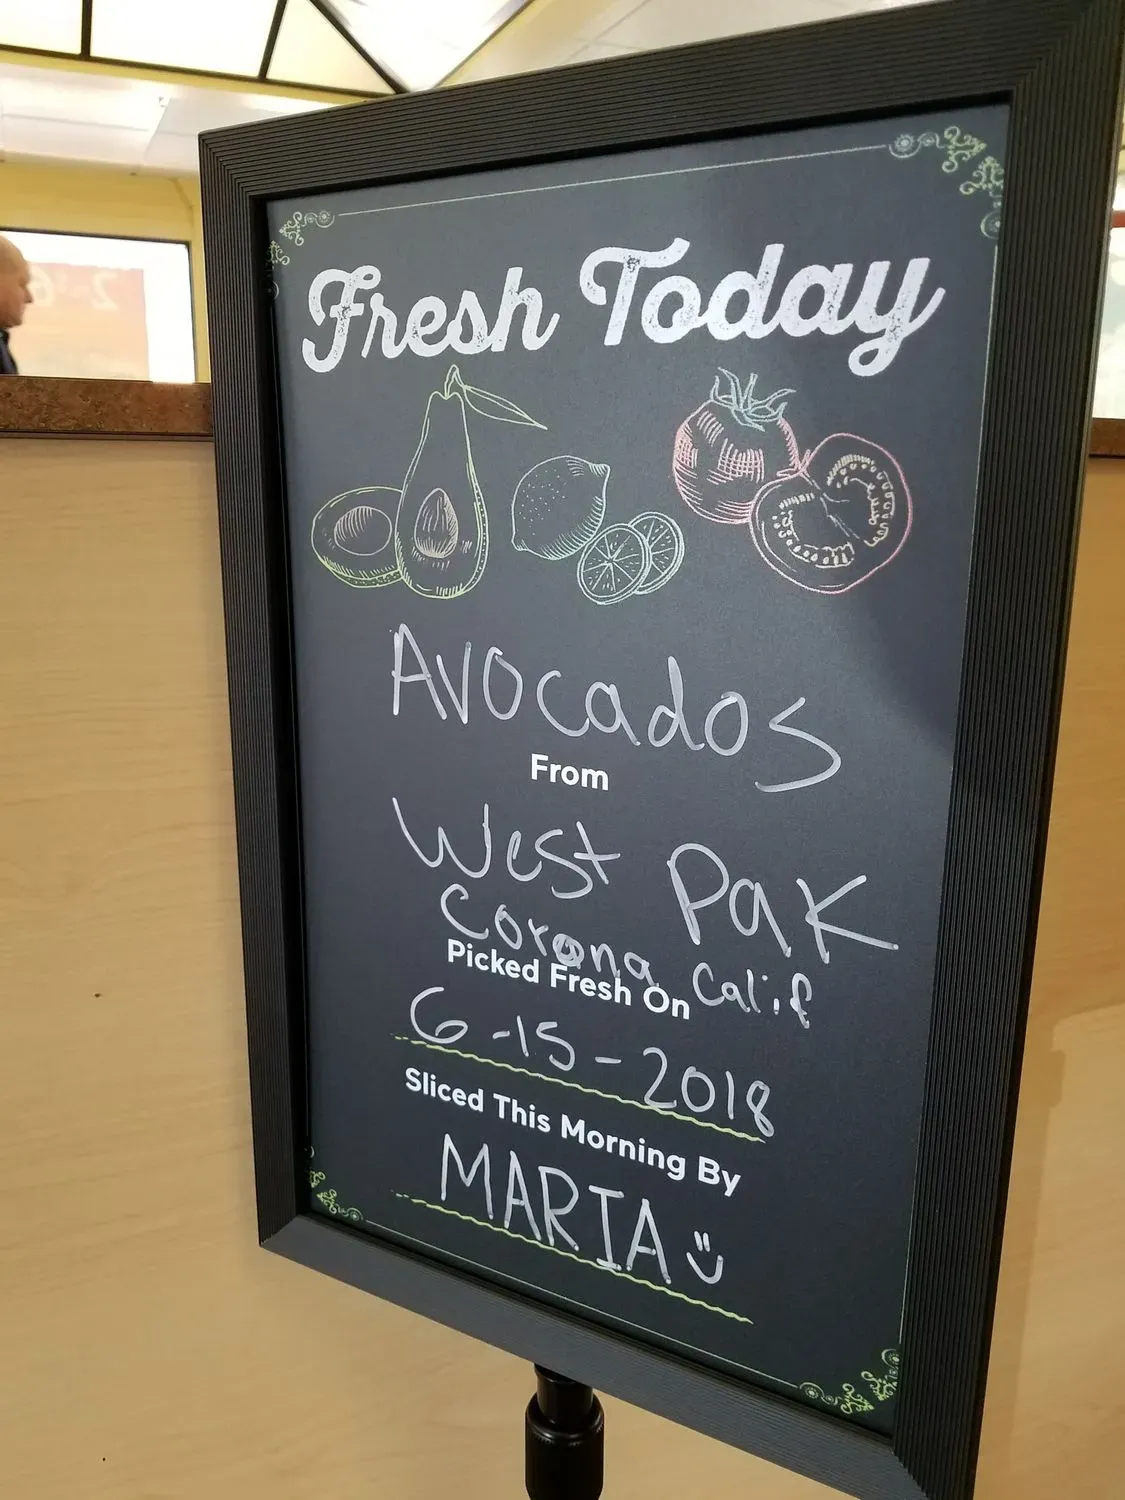 Fresh Today
Avocados
From
West Pak
Corona Calif
Picked Fresh On
6-15-2018
Sliced This Morning By
MARIA